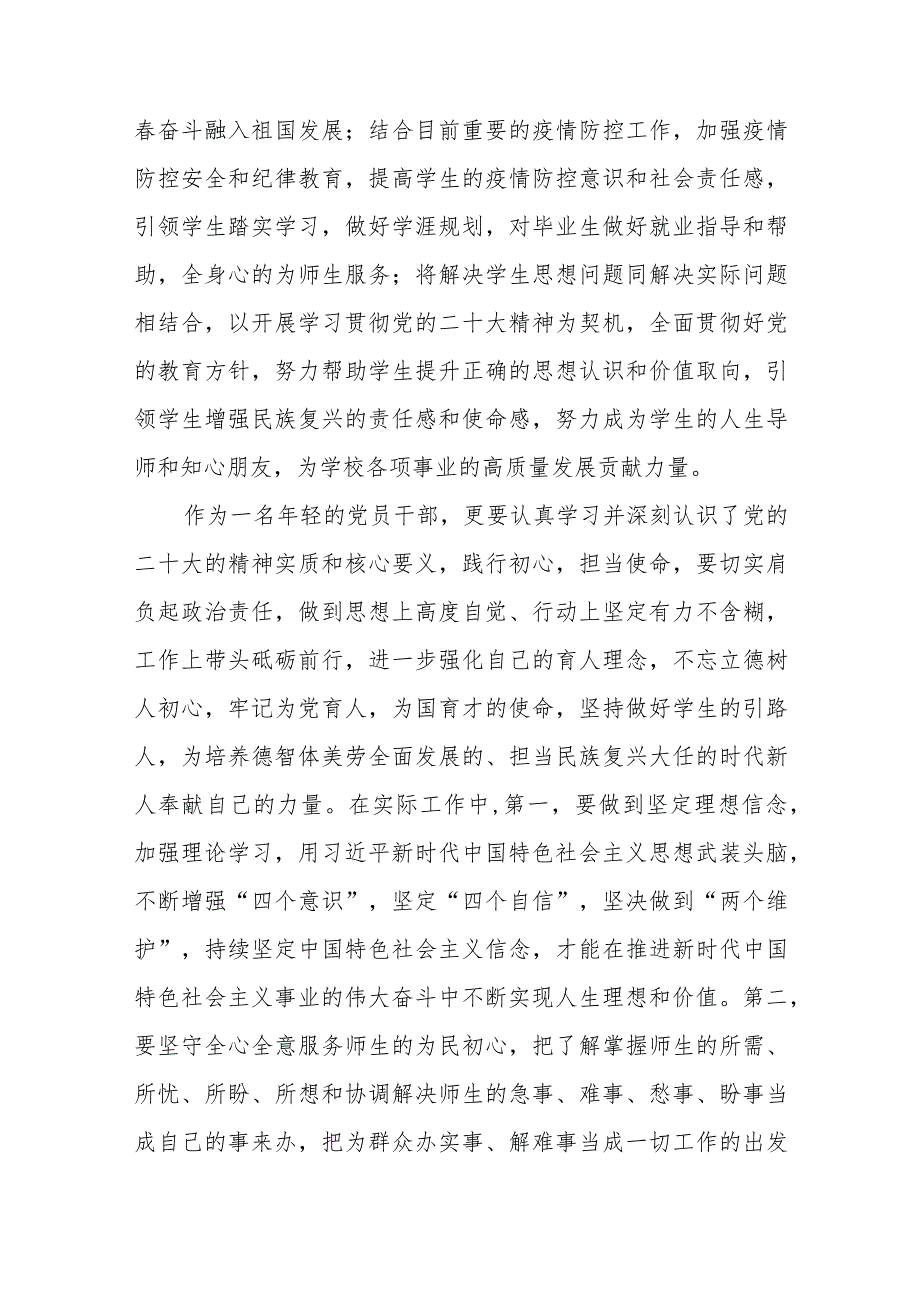 春奋斗融入祖国发展；结合目前重要的疫情防控工作，加强疫情
防控安全和纪律教育，提高学生的疫情防控意识和社会责任感，
引领学生踏实学习，做好学涯规划，对毕业生做好就业指导和帮
助，全身心的为师生服务；将解决学生思想问题同解决实际问题
相结合，以开展学习贯彻党的二十大精神为契机，全面贯彻好党
的教育方针，努力帮助学生提升正确的思想认识和价值取向，引
领学生增强民族复兴的责任感和使命感，努力成为学生的人生导
师和知心朋友，为学校各项事业的高质量发展贡献力量。
作为一名年轻的党员干部，更要认真学习并深刻认识了党的
二十大的精神实质和核心要义，践行初心，担当使命，要切实肩
负起政治责任，做到思想上高度自觉、行动上坚定有力不含糊，
工作上带头砥砺前行，进一步强化自己的育人理念，不忘立德树
人初心，牢记为党育人，为国育才的使命，坚持做好学生的引路
人，为培养德智体美劳全面发展的、担当民族复兴大任的时代新
人奉献自己的力量。在实际工作中,第一，要做到坚定理想信念，
加强理论学习，用习近平新时代中国特色社会主义思想武装头脑，
不断增强“四个意识”，坚定“四个自信”，坚决做到“两个维
护”，持续坚定中国特色社会主义信念，才能在推进新时代中国
特色社会主义事业的伟大奋斗中不断实现人生理想和价值。第二，
要坚守全心全意服务师生的为民初心，把了解掌握师生的所需、
所忧、所盼、所想和协调解决师生的急事、难事、愁事、盼事当
成自己的事来办，把为群众办实事、解难事当成一切工作的出发